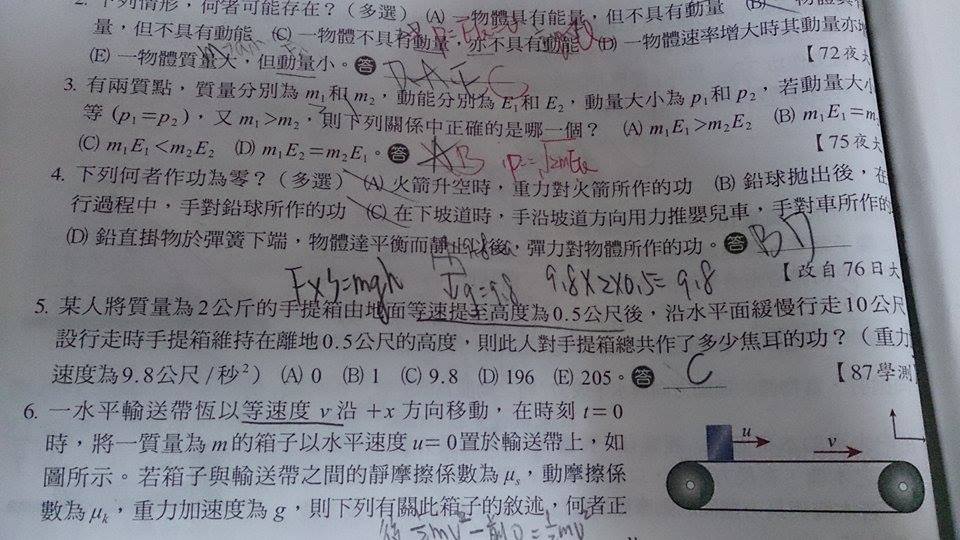 2. 下列情形，何者可能存在？（多選） (A) 一物體具有能量，但不具有動量 (B) 一物體具有
量，但不具有動能 (C) 一物體不具有動量，亦不具有動能 (D) 一物體速率增大時其動量亦
(E) 一物體質量大，但動量小。答 DAEC 【72夜大
3. 有兩質點，質量分別為 m₁和 m₂，動能分別為 E₁和 E₂，動量大小為 p₁和 p₂，若動量大小
等 (p₁=p₂)，又 m₁>m₂，則下列關係中正確的是哪一個？ (A) m₁E₁>m₂E₂ (B) m₁E₁=m
(C) m₁E₁<m₂E₂ (D) m₁E₂=m₂E₁。答 AB P=√2mEk 【75夜大
4. 下列何者作功為零？（多選） (A) 火箭升空時，重力對火箭所作的功 (B) 鉛球拋出後，在
行過程中，手對鉛球所作的功 (C) 在下坡道時，手沿坡道方向用力推嬰兒車，手對車所作的
(D) 鉛直掛物於彈簧下端，物體達平衡而靜止以後，彈力對物體所作的功。答 BD
【改自76日大
F×S=mgh g=9.8 9.8×2×0.5=9.8
5. 某人將質量為2公斤的手提箱由地面等速提至高度為0.5公尺後，沿水平面緩慢行走10公尺
設行走時手提箱維持在離地0.5公尺的高度，則此人對手提箱總共作了多少焦耳的功？（重力
速度為9.8公尺/秒²） (A) 0 (B) 1 (C) 9.8 (D) 196 (E) 205。答 C 【87學測
6. 一水平輸送帶恆以等速度 v 沿 +x 方向移動，在時刻 t=0
時，將一質量為 m 的箱子以水平速度 u=0 置於輸送帶上，如
圖所示。若箱子與輸送帶之間的靜摩擦係數為 μs，動摩擦係
數為 μk，重力加速度為 g，則下列有關此箱子的敘述，何者正
u v
後 ½mv² - 前0 = ½mv²